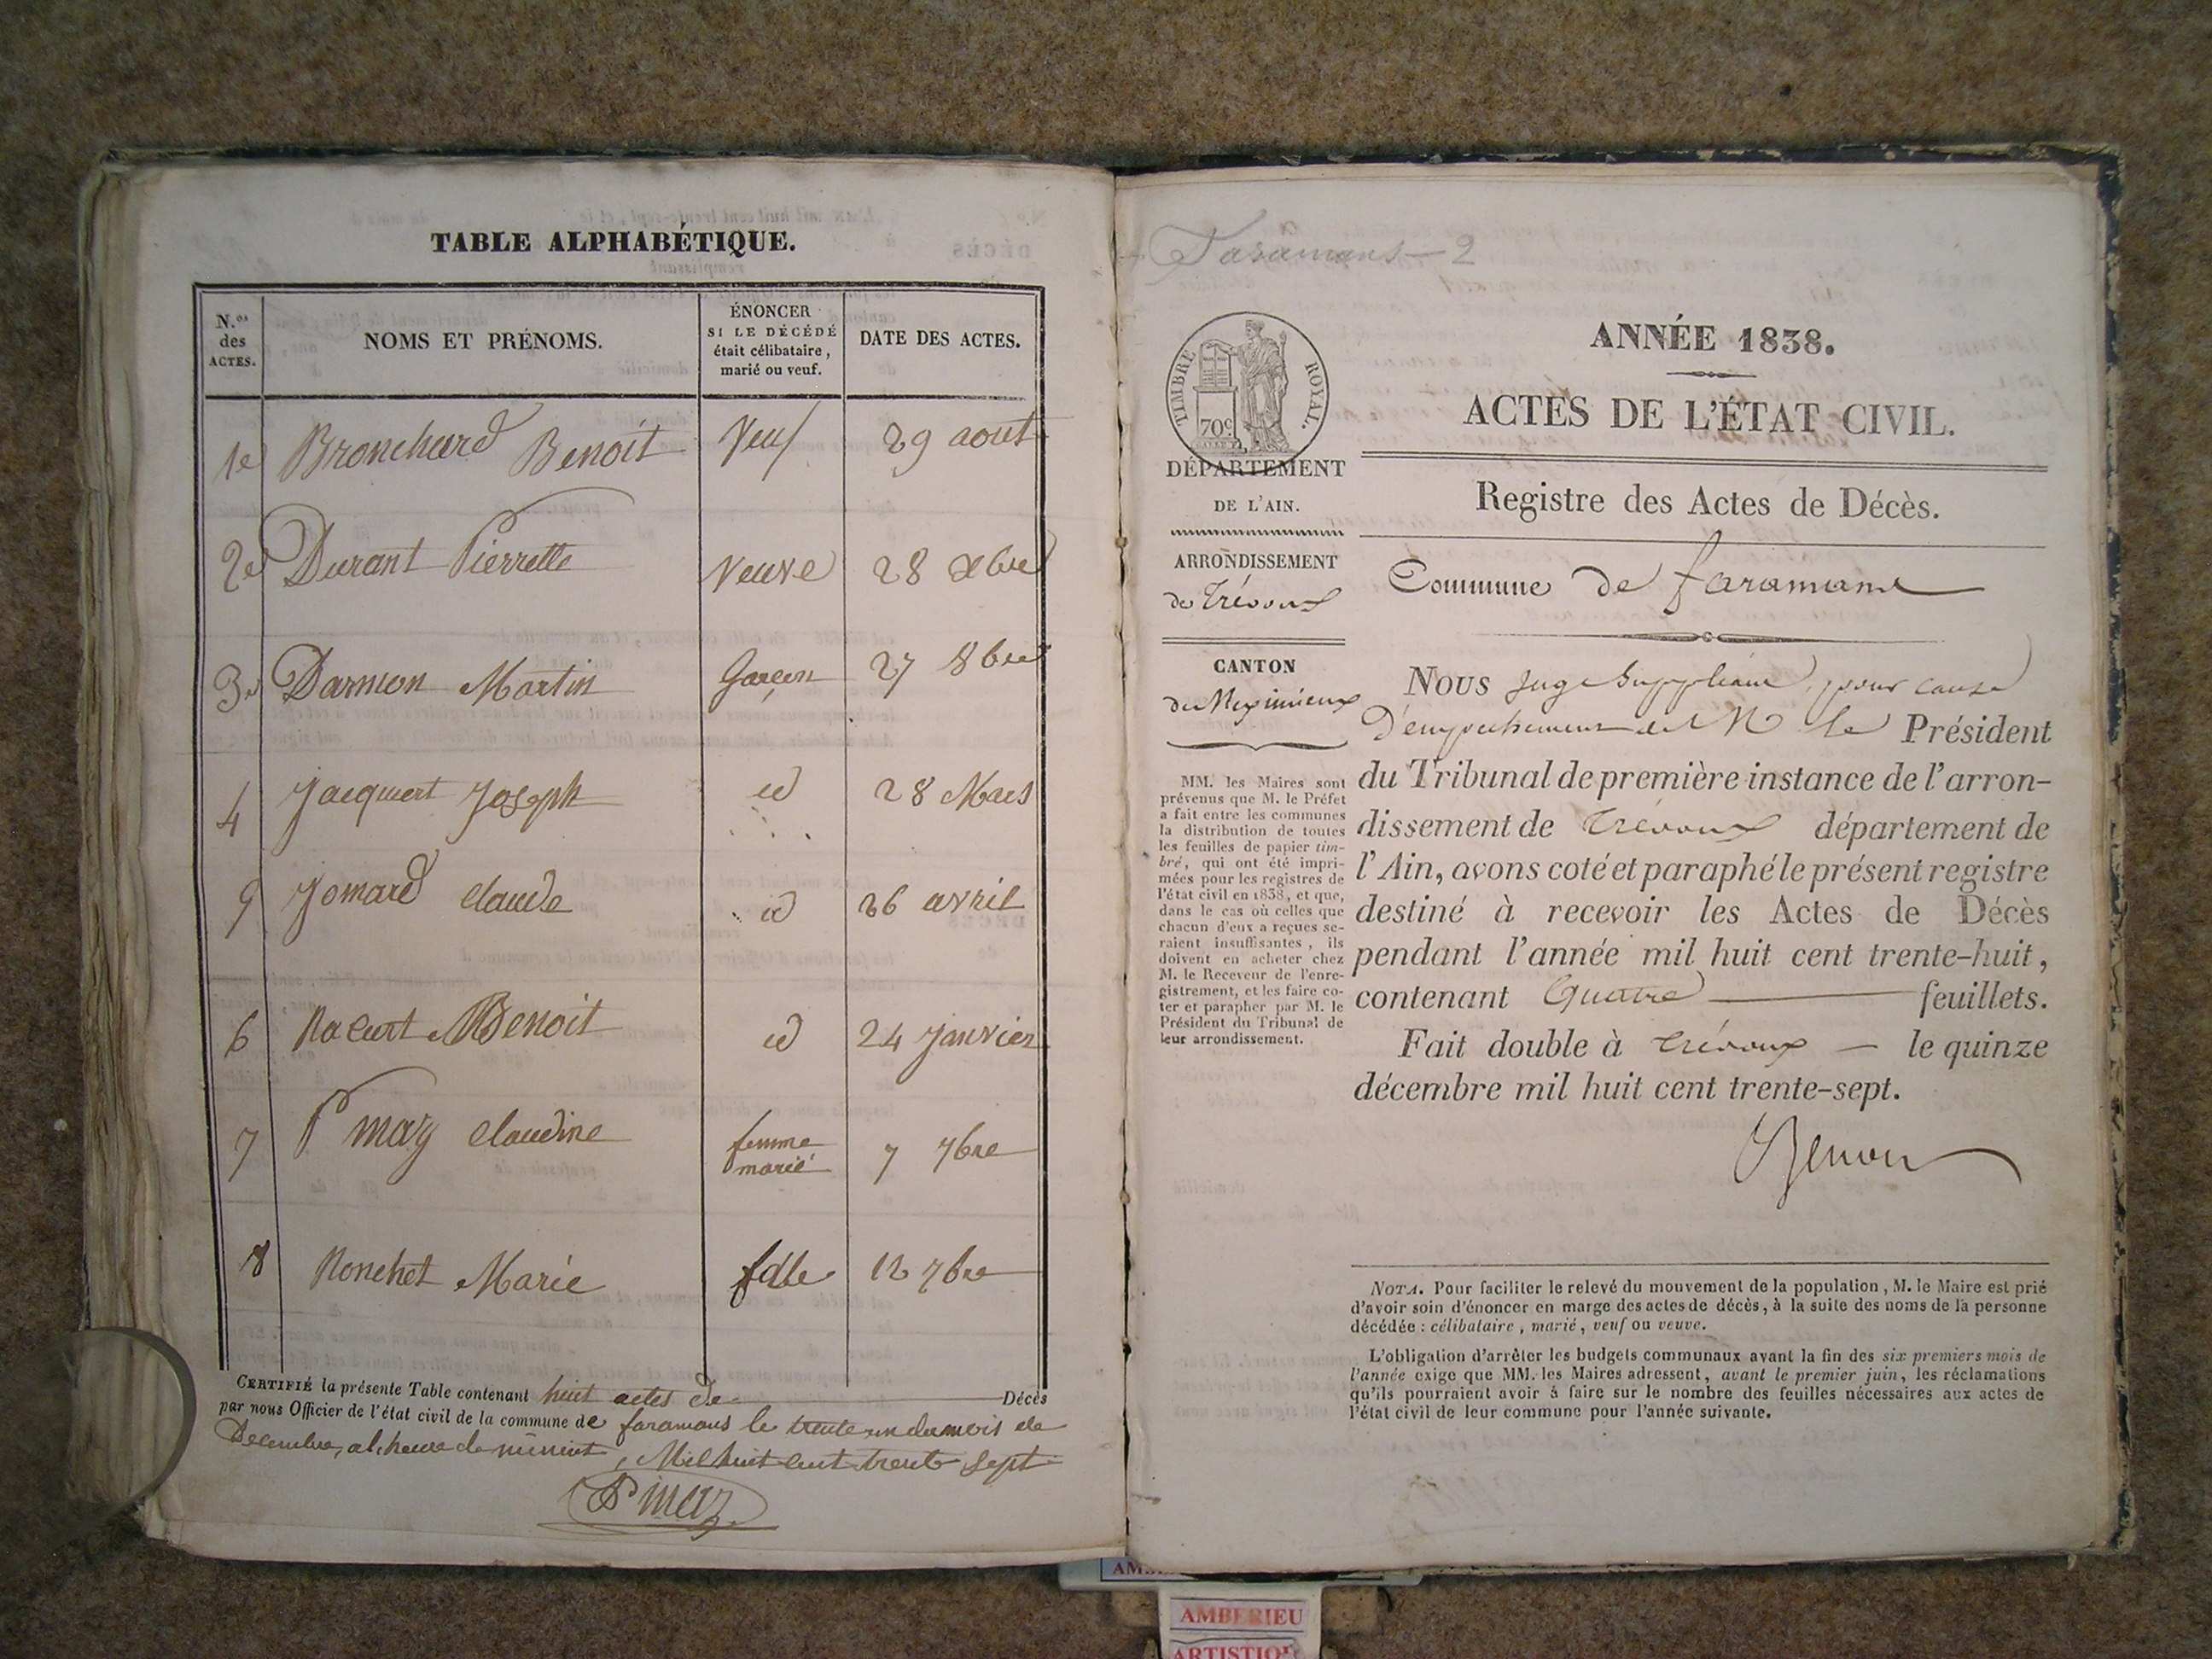 TABLE ALPHABÉTIQUE.
N.os des ACTES.
NOMS ET PRÉNOMS.
ÉNONCER SI LE DÉCÉDÉ était célibataire, marié ou veuf.
DATE DES ACTES.
1e Bronchard Benoit Veuf 29 aout
2e Durant Pierrette Veuve 28 Xbre
3e Darmon Martin Garçon 27 8bre
4 Jacquert Joseph id 28 Mars
5 Jomard Claude id 26 avril
6 Benoit id 24 Janvier
7 P may Claudine femme marié 7 7bre
8 Ronchet Marie fdle 12 7bre
CERTIFIÉ la présente Table contenant huit actes de Décès
par nous Officier de l'état civil de la commune de faramans le trente un du mois de
Decembre, al heure de minuit, Mil huit cent trente sept
P may
Faramans - 2
TIMBRE ROYAL.
70c
DÉPARTEMENT
DE L'AIN.
ARRONDISSEMENT
de Trévoux
CANTON
de Meximieux
MM. les Maires sont
prévenus que M. le Préfet
a fait entre les communes
la distribution de toutes
les feuilles de papier tim-
bré, qui ont été impri-
mées pour les registres de
l'état civil en 1838, et que,
dans le cas où celles que
chacun d'eux a reçues se-
raient insuffisantes, ils
doivent en acheter chez
M. le Receveur de l'enre-
gistrement, et les faire co-
ter et parapher par M. le
Président du Tribunal de
leur arrondissement.
ANNÉE 1838.
ACTES DE L'ÉTAT CIVIL.
Registre des Actes de Décès.
Commune de faramans
NOUS Juge Suppléant, pour cause
D'empechement de M le Président
du Tribunal de première instance de l'arron-
dissement de Trévoux département de
l'Ain, avons coté et paraphé le présent registre
destiné à recevoir les Actes de Décès
pendant l'année mil huit cent trente-huit,
contenant Quatre feuillets.
Fait double à Trévoux — le quinze
décembre mil huit cent trente-sept.
NOTA. Pour faciliter le relevé du mouvement de la population, M. le Maire est prié
d'avoir soin d'énoncer en marge des actes de décès, à la suite des noms de la personne
décédée : célibataire, marié, veuf ou veuve.
L'obligation d'arrêter les budgets communaux avant la fin des six premiers mois de
l'année exige que MM. les Maires adressent, avant le premier juin, les réclamations
qu'ils pourraient avoir à faire sur le nombre des feuilles nécessaires aux actes de
l'état civil de leur commune pour l'année suivante.
AMBERIEU
ARTISTIQUE